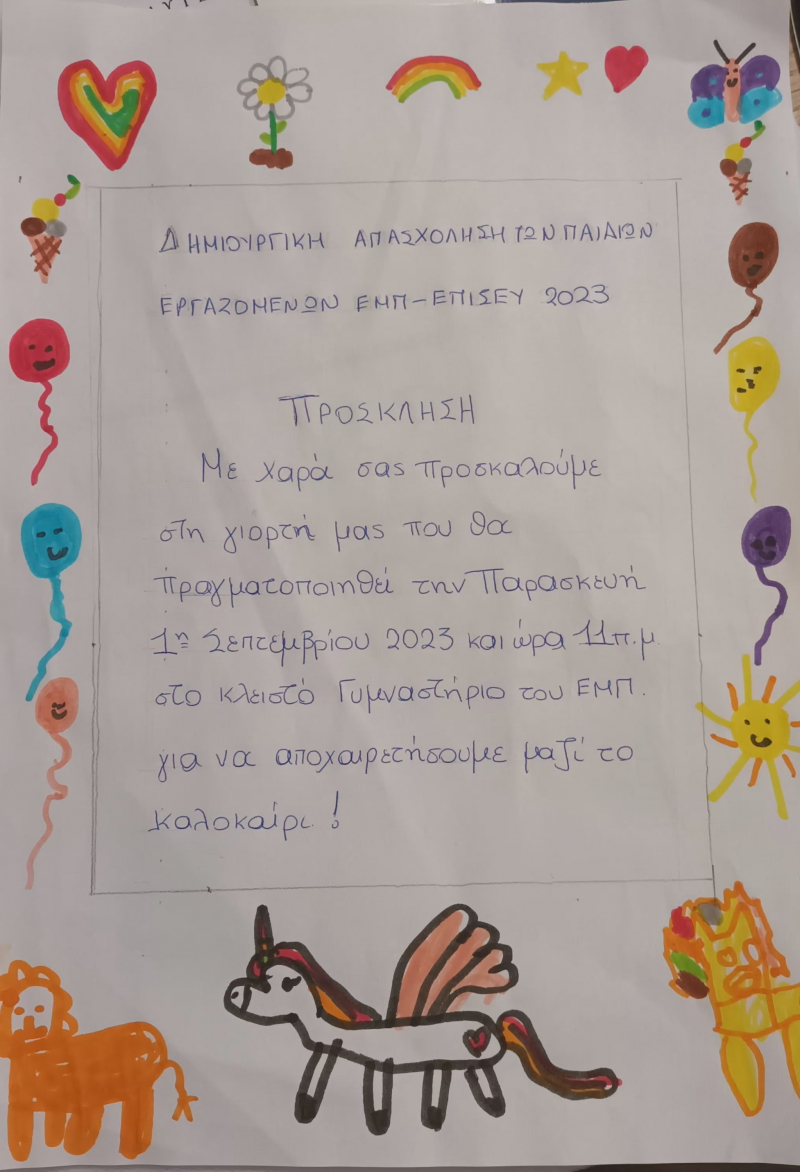 ΔΗΜΙΟΥΡΓΙΚΗ ΑΠΑΣΧΟΛΗΣΗ ΤΩΝ ΠΑΙΔΙΩΝ
ΕΡΓΑΖΟΜΕΝΩΝ ΕΜΠ-ΕΠΙΣΕΥ 2023
ΠΡΟΣΚΛΗΣΗ
Με χαρά σας προσκαλούμε
στη γιορτή μας που θα
πραγματοποιηθεί την Παρασκευή
1η Σεπτεμβρίου 2023 και ώρα 11π.μ
στο κλειστό Γυμναστήριο του ΕΜΠ.
για να αποχαιρετήσουμε μαζί το
καλοκαίρι!